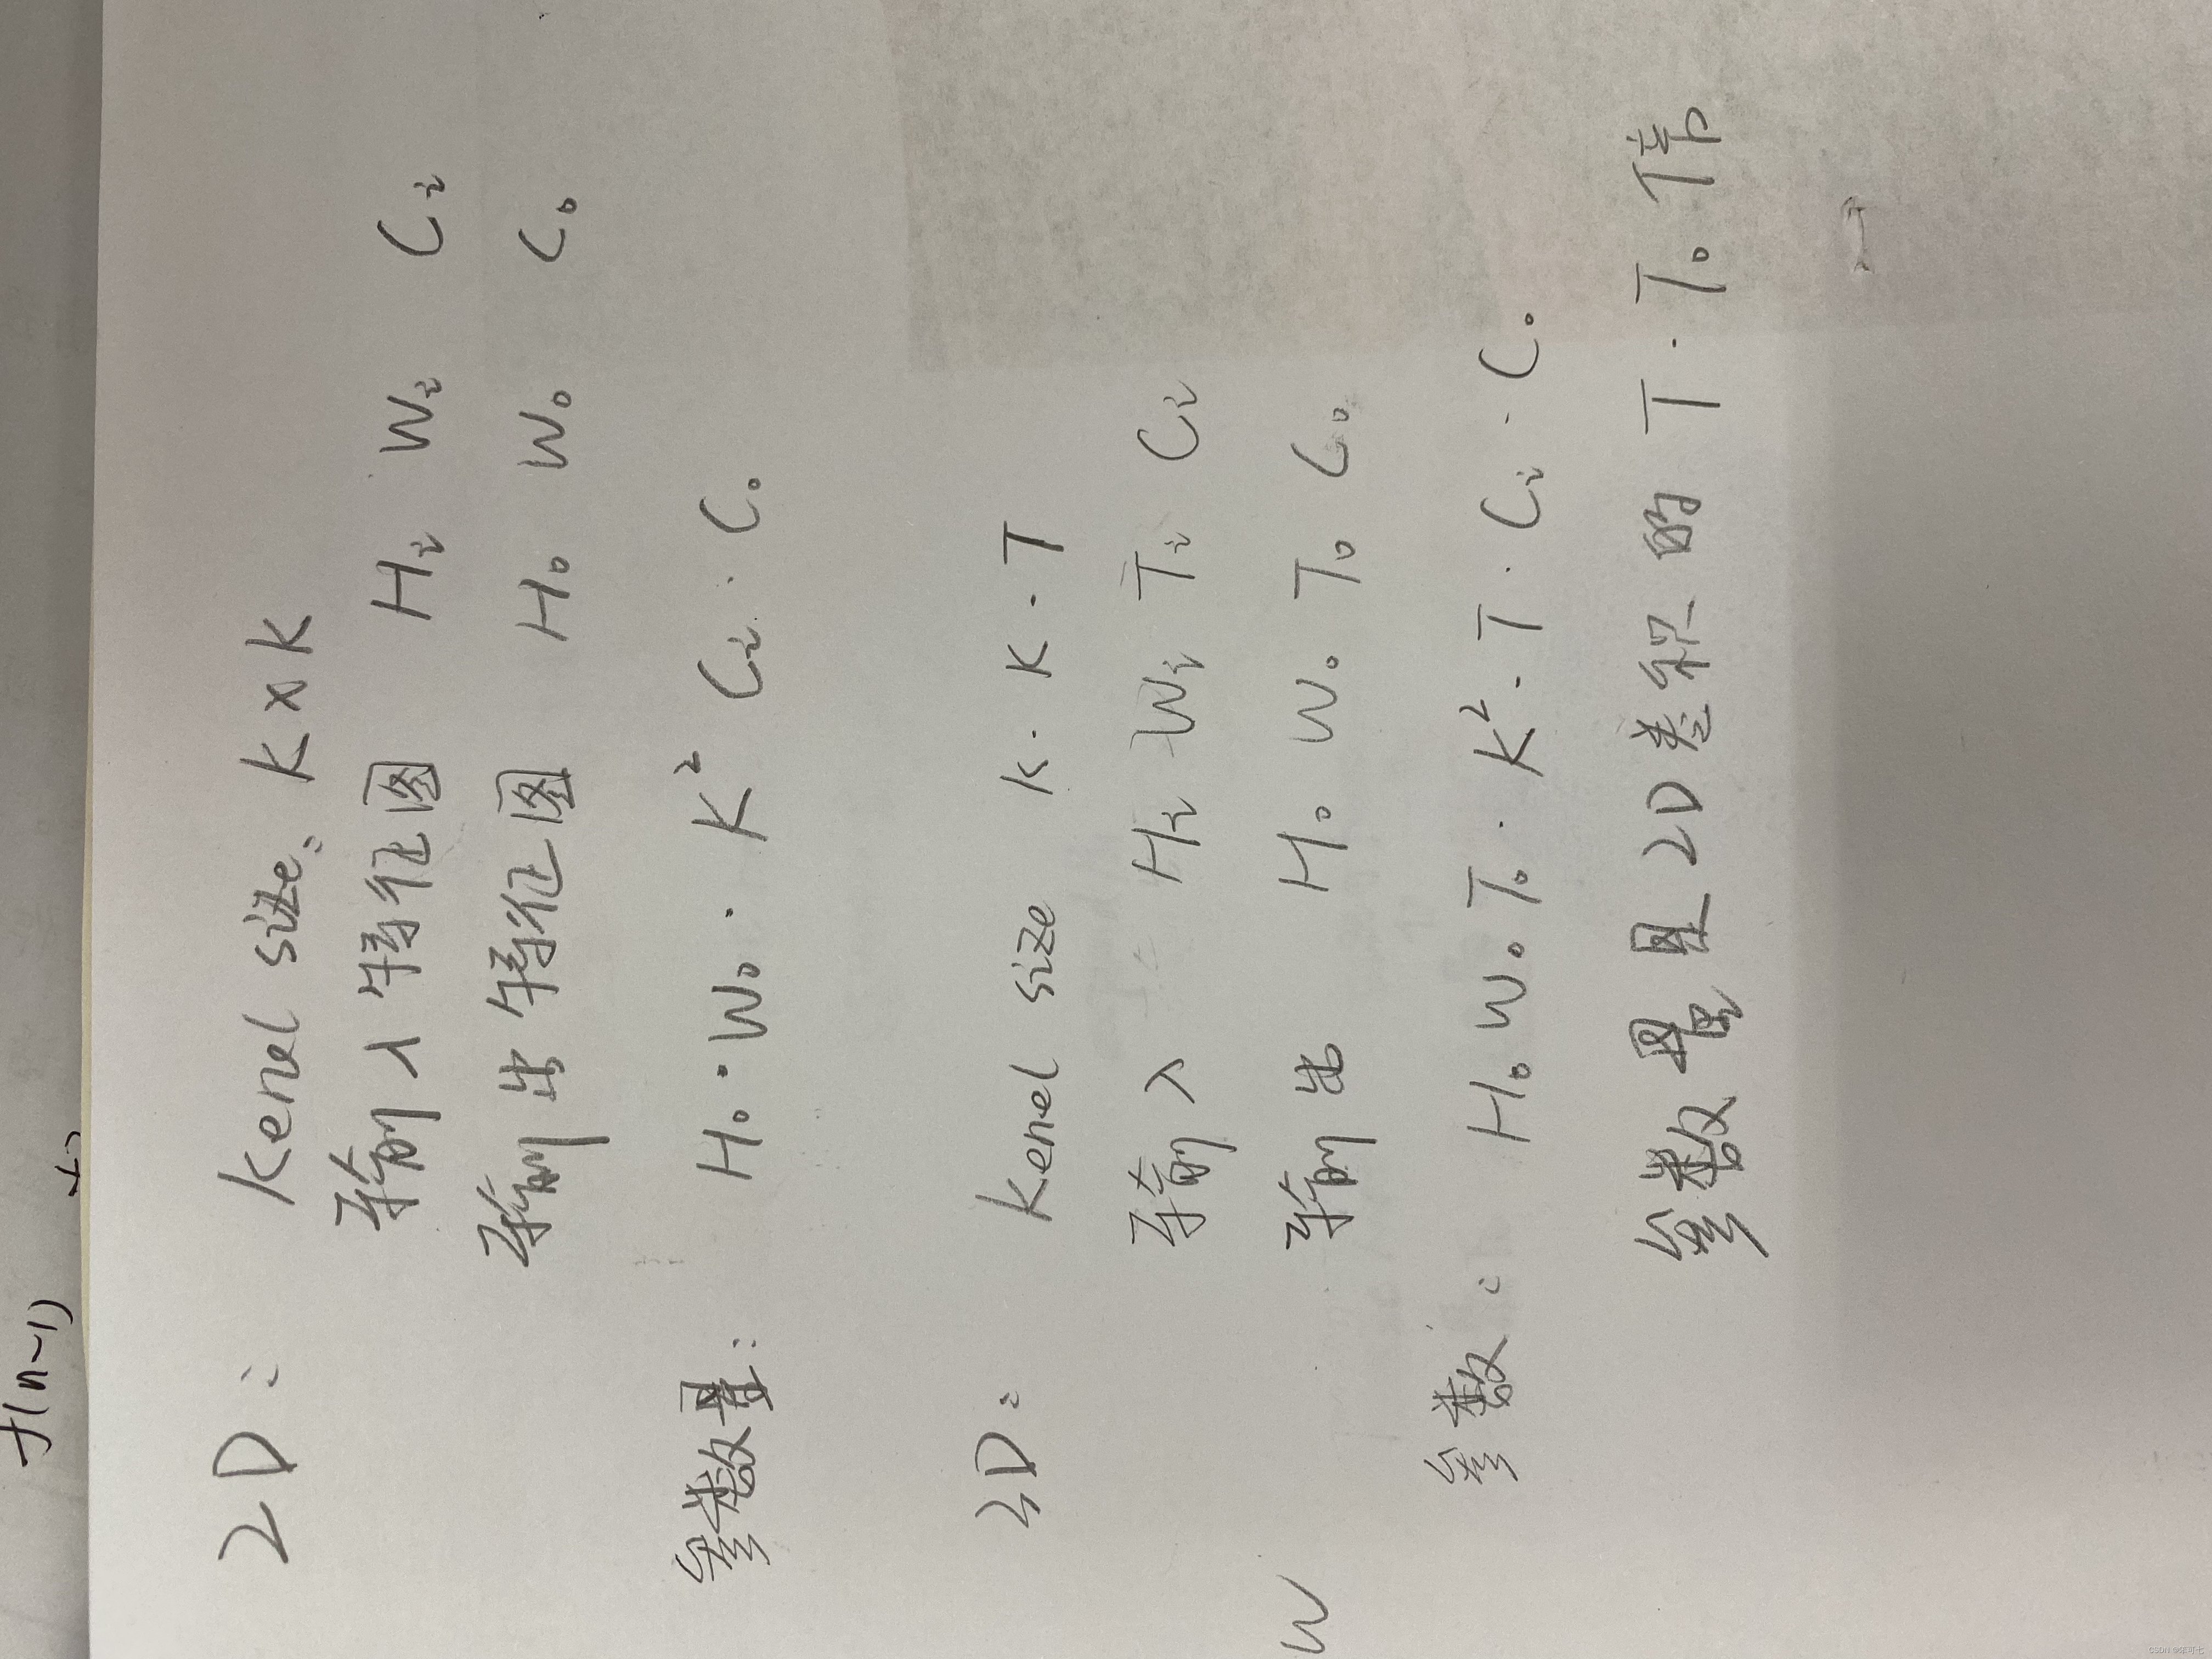 f(n-1)
2D:
kenel size: k×k
输入特征图 Hi Wi Ci
输出特征图 Ho Wo Co
参数量: Ho·Wo·K² Ci·Co
3D:
kenel size k·k·T
输入 Hi Wi Ti Ci
输出 Ho Wo To Co
W
参数: Ho Wo To·K²·T·Ci·Co
参数量是2D卷积的 T·To倍